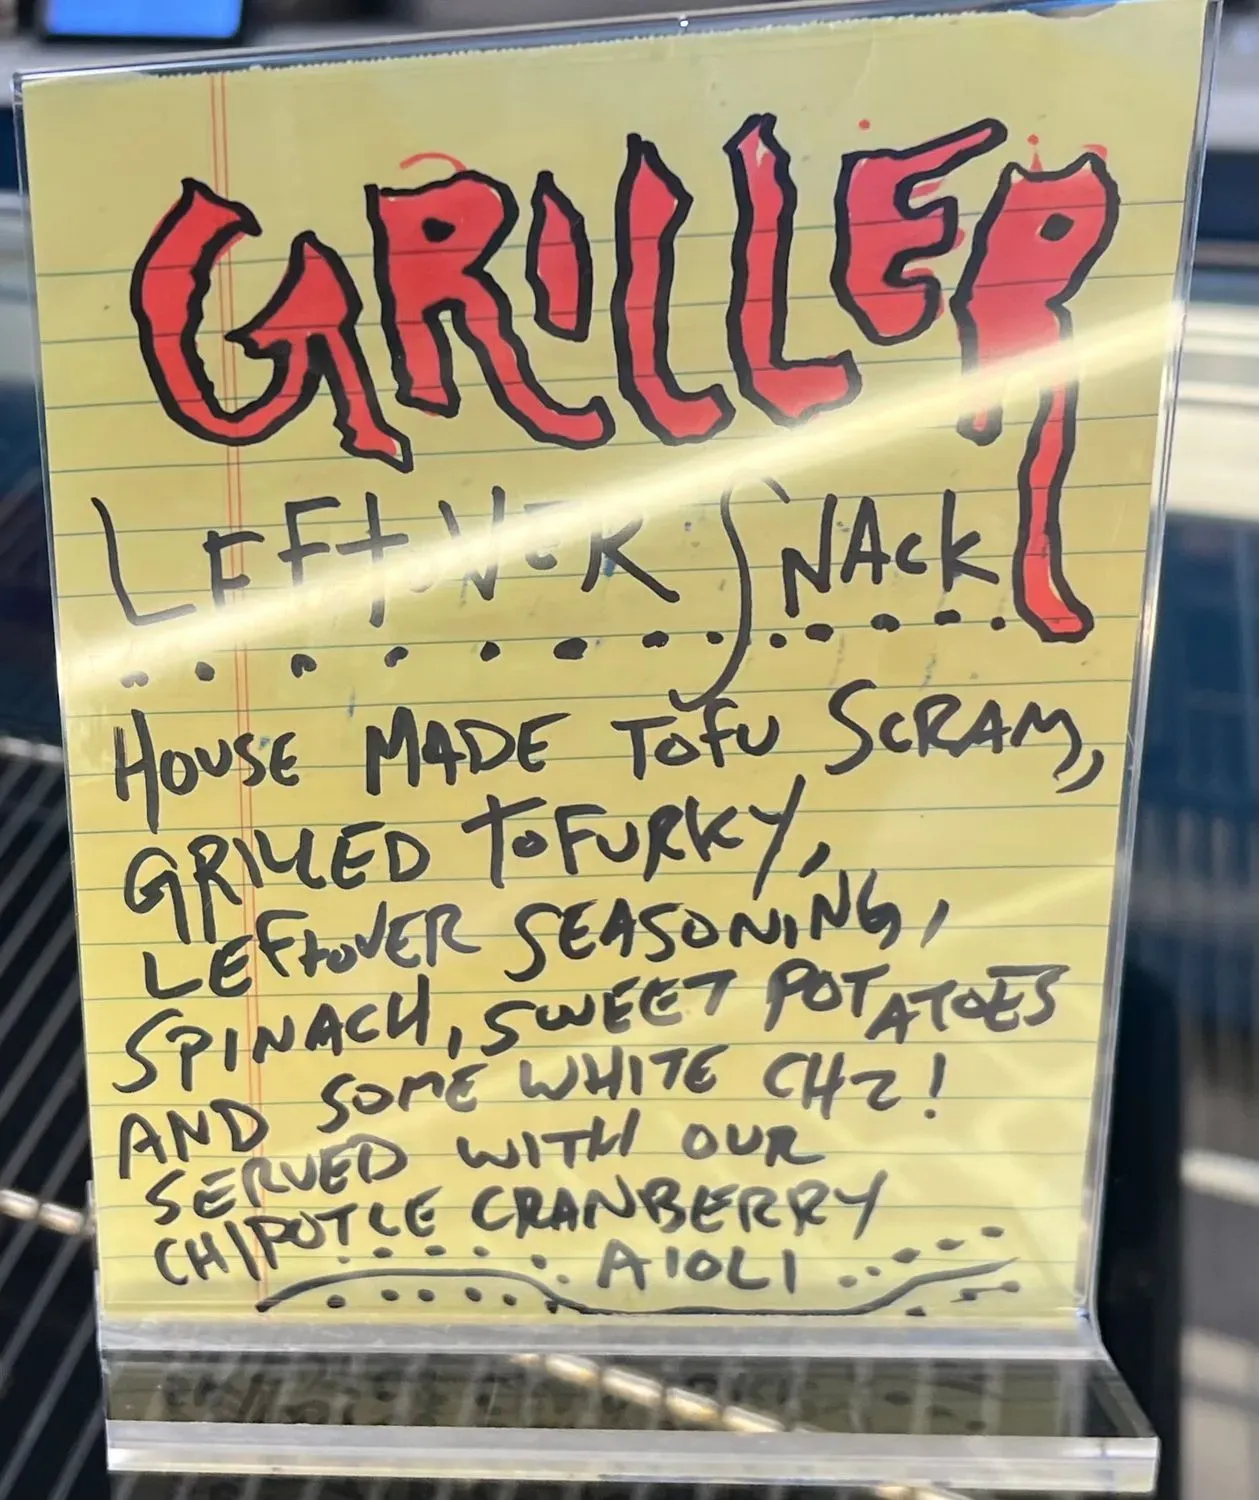 GRILLER
LEFtOVER SNAcK
HOUSE MADE TOFU SCRAM,
GRILLED TOFURKY,
LEFtOVER SEASONING,
SPINACH, SWEET POTATOES
AND SOME WHITE CHZ!
SERVED WITH OUR
CHIPOTLE CRANBERRY
AIOLI